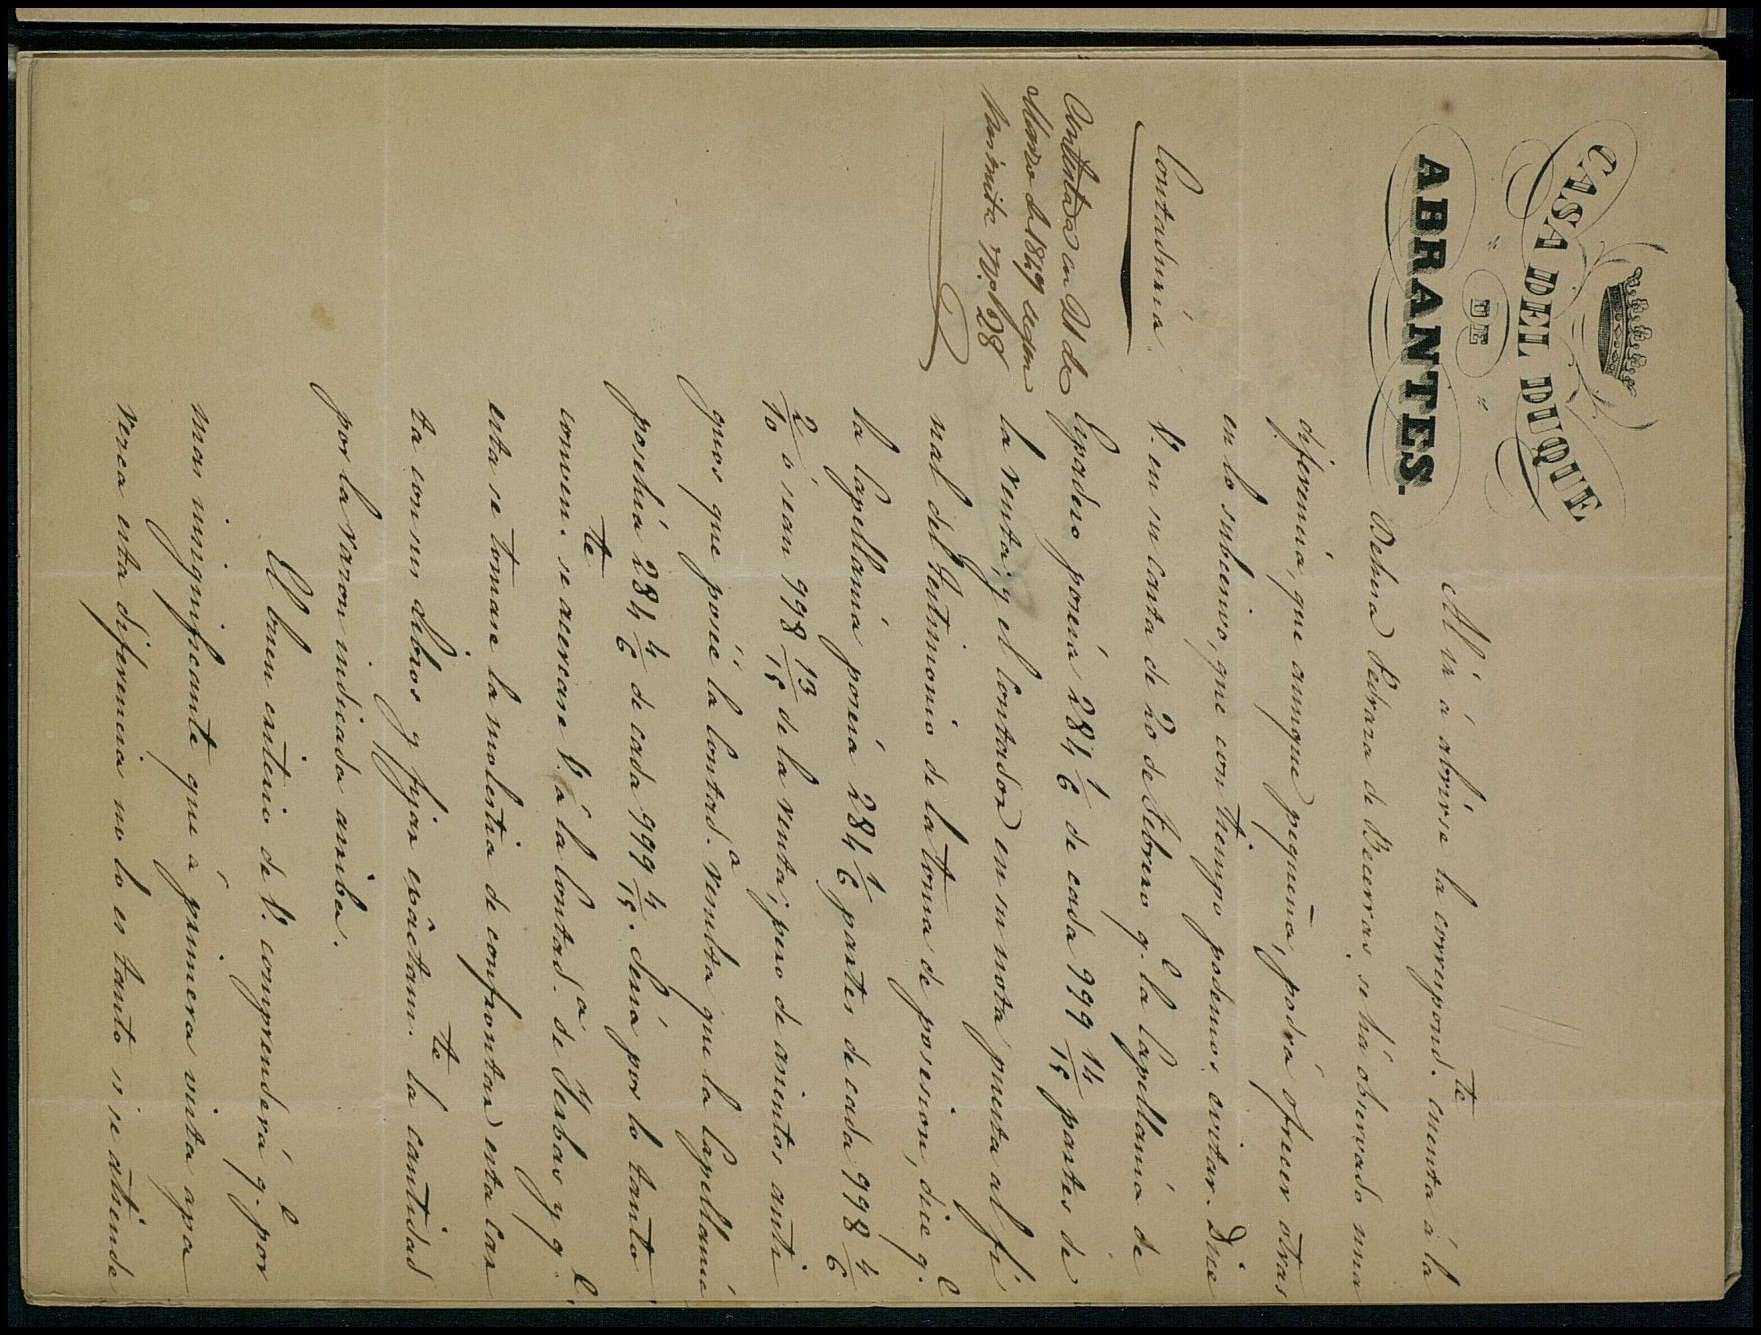 CASA DEL DUQUE
DE
ABRANTES.
Contaduría
Contestada en 21 de
Marzo de 1849 segun
minuta nº 28
Al ir á abrirse la correspond.te cuenta á la
Dehesa Pedraza de Becerras, se há observado una
diferencia, que aunque pequeña, podrá ofrecer otras
en lo subcesivo, que con tiempo podemos evitar. Dice
V. en su carta de 20 de Febrero q.e la Capellanía de
Espadero poseía 284 1/6 de cada 999 14/15 partes de
la renta, y el Contador en su nota puesta al fi
nal del testimonio de la toma de posesion, dice q.e
la Capellanía poseía 284 1/6 partes de cada 998 4/6
2/10 ó sean 998 13/15 de la renta; pero de asientos anti
guos que posée la Contad.a resulta que la Capellanía
posehia 284 4/6 de cada 999 4/15. Sería por lo tanto
conven.te se acercase V. á la Contad.a de Yerbas y q.e
esta se tomase la molestia de confrontar esta car
ta con sus libros y fijar exâctam.te la cantidad
por la razon indicada arriba.
El buen criterio de V. comprenderá q.e por
mas insignificante que á primera vista apa
rezca esta diferencia no lo es tanto si se atiende